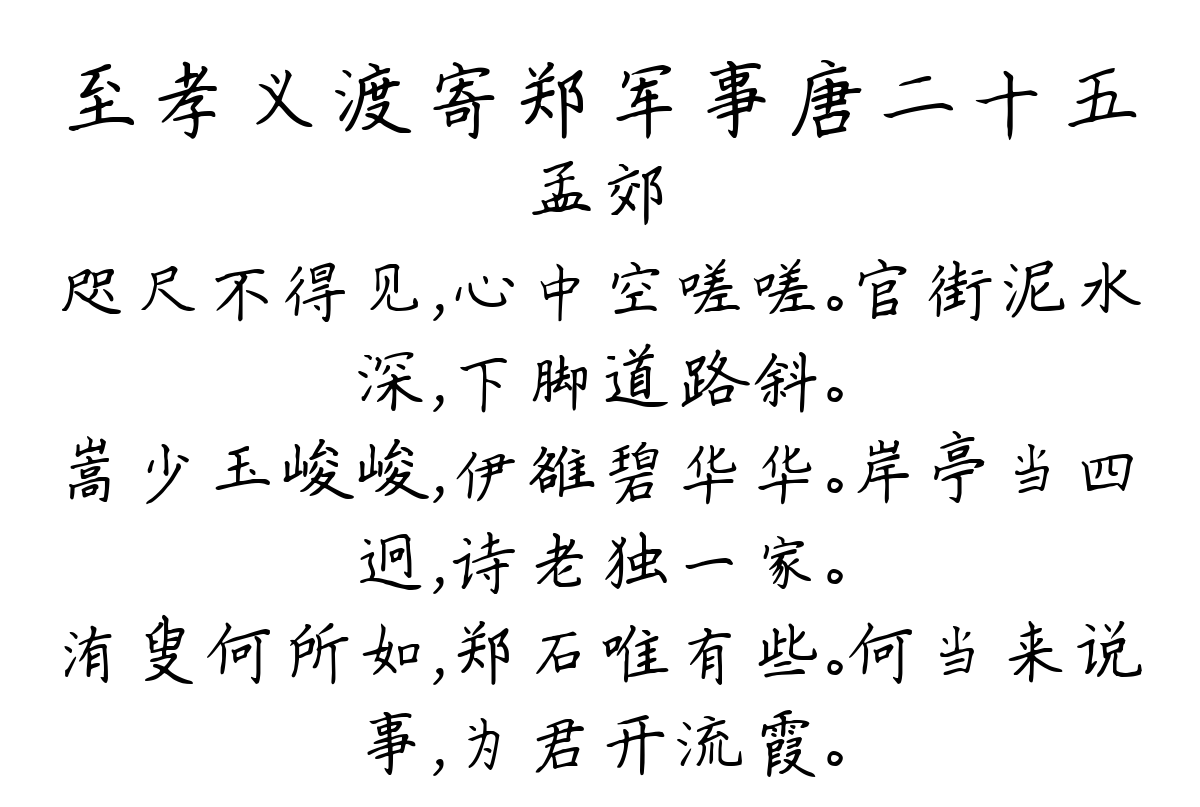 至孝义渡寄郑军事唐二十五
孟郊
咫尺不得见,心中空嗟嗟。官街泥水
深,下脚道路斜。
嵩少玉峻峻,伊雒碧华华。岸亭当四
迥,诗老独一家。
洧叟何所如,郑石唯有些。何当来说
事,为君开流霞。